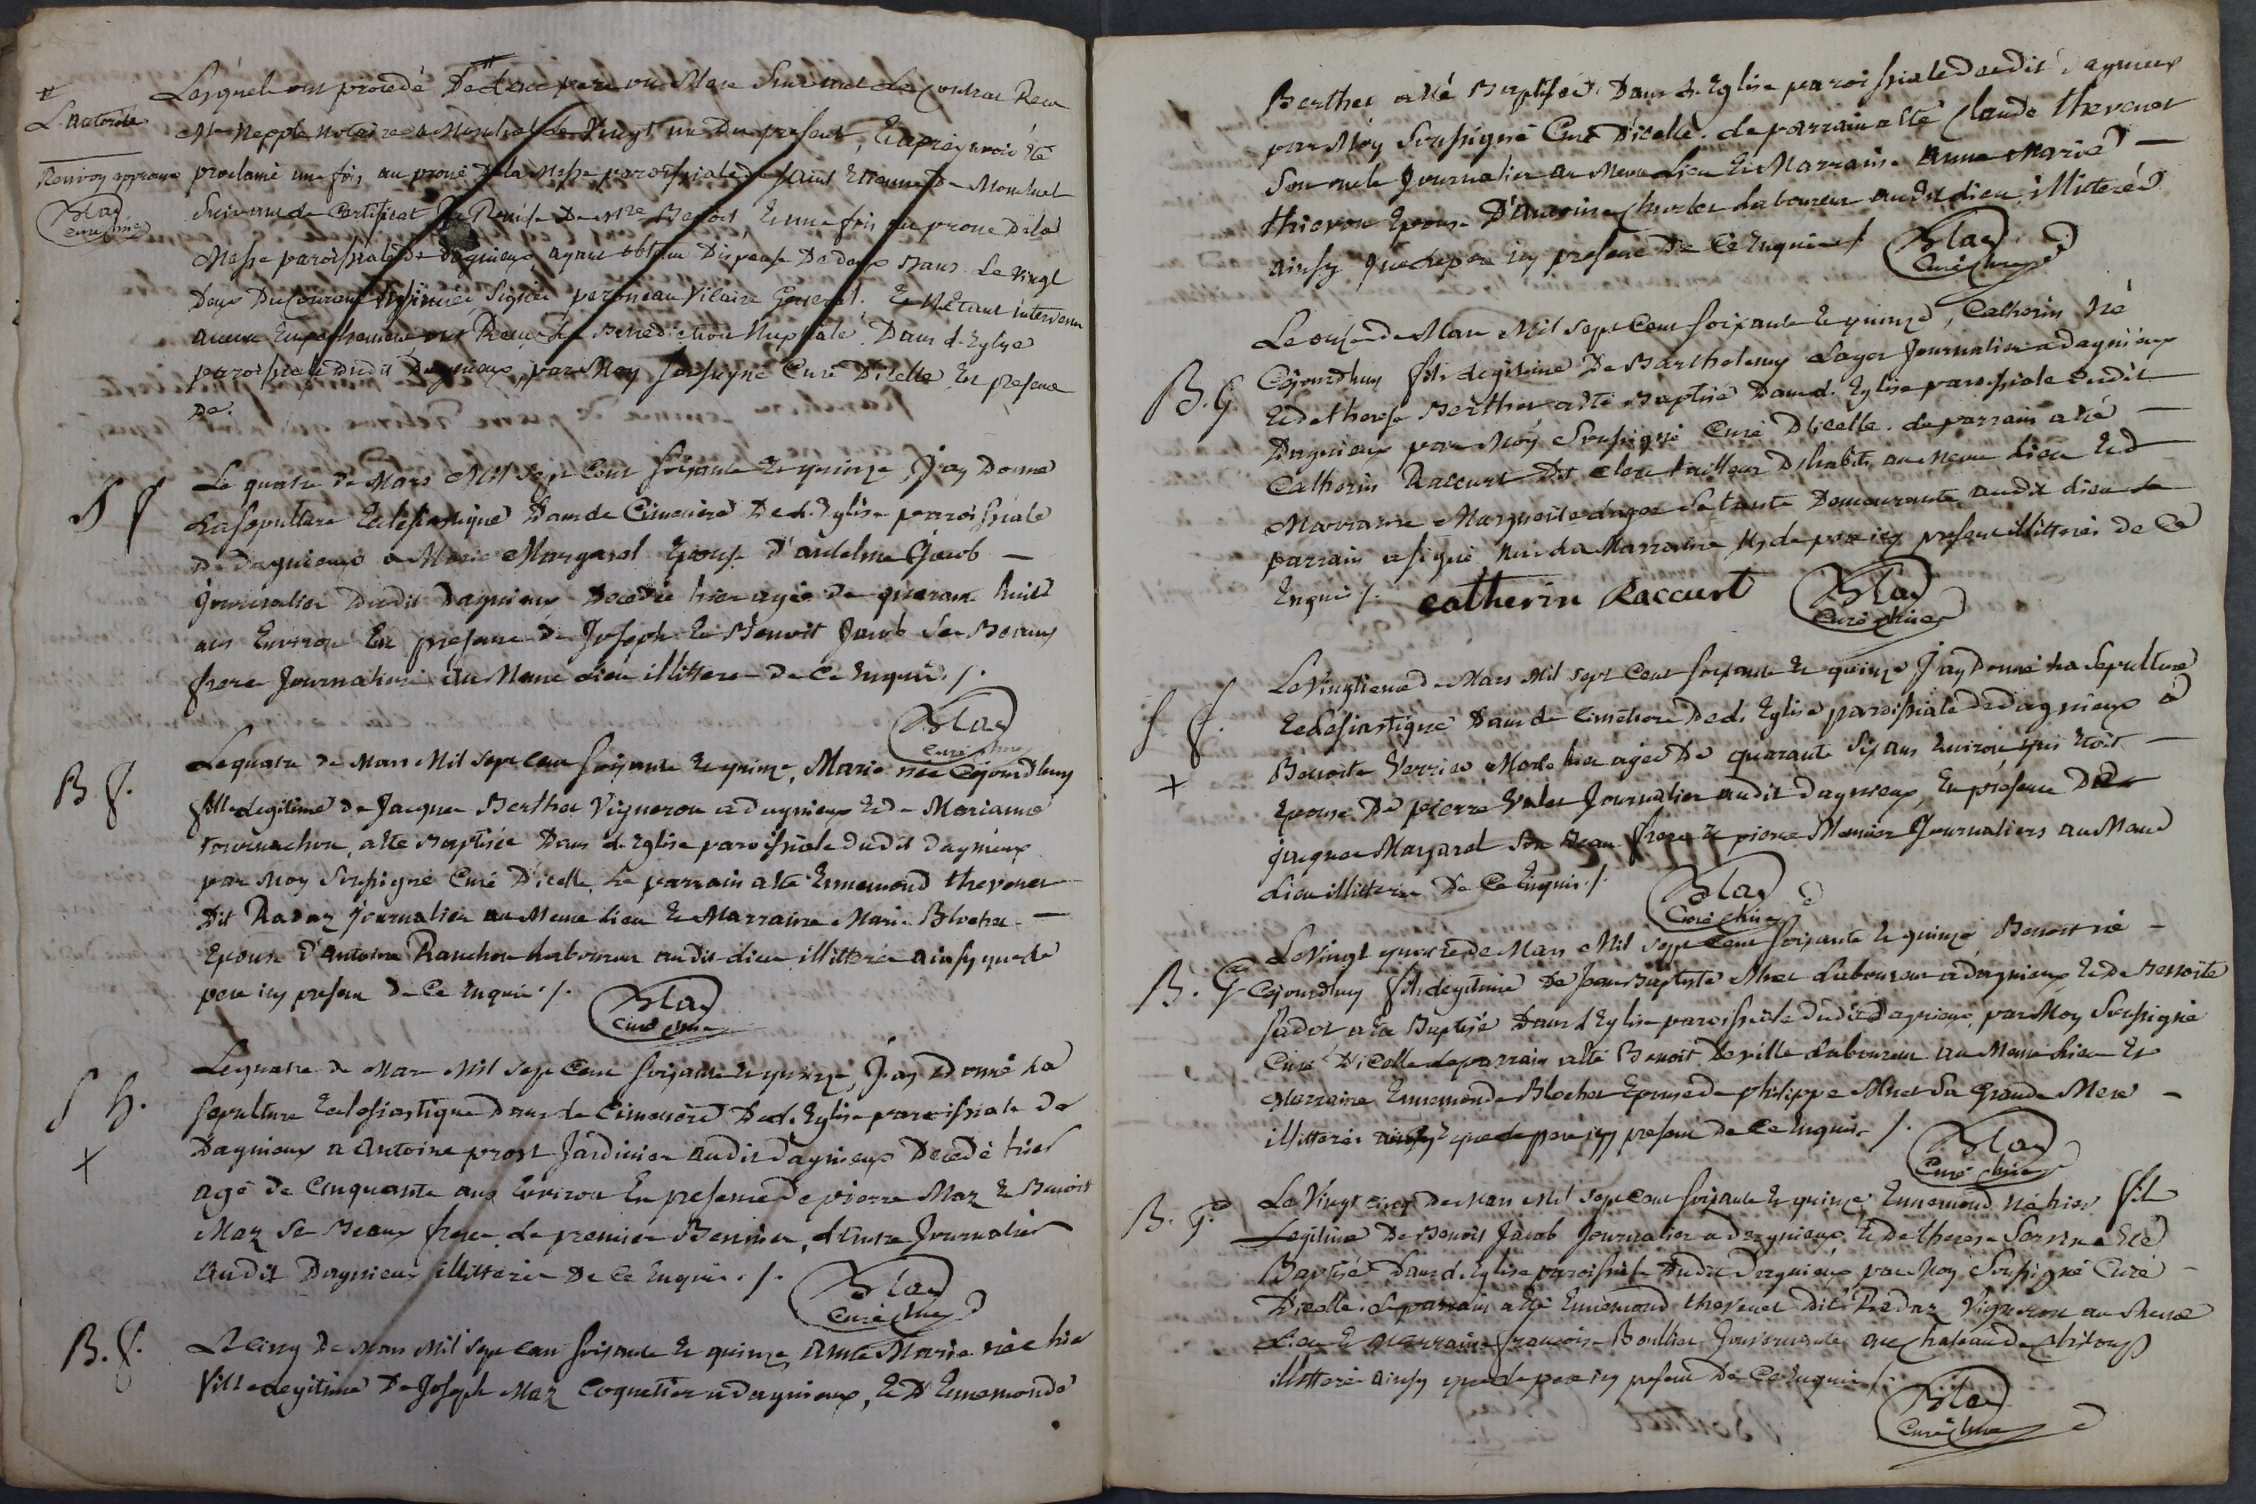 Lesquels ont procédé De Leur pere ou Mere Suivant Le Contrat Recu
#
L'autorité
Me Nepple Notaire a Montluel Le Vingt un Du present, Et après avoir été
Renvoy approuvé
proclamé une fois au prone De la Messe paroissiale de Saint Etienne De Montluel
Blad
curé
Suivant Le Certificat De Benoit, Et une fois au prone De la
Messe paroissiale De Dagnieux, ayant obtenu Dispense De deux Bans Le Vingt
Deux Du Courant Signée Vicaire General. Et N'Etant intervenu
aucun Empechement, ont Reçu La Benediction Nuptiale Dans L'Eglise
paroissiale Dudit Dagnieux, par Moy Soussigné Curé D'icelle En presence
De.
S f
Le quatre De Mars Mil Sept Cent Soixante Et quinze, J'ay Donné
La Sepulture Eclesiastique Dans Le Cimetiere De L'Eglise paroissiale
De Dagnieux a Marie Margarel Epouse D'antelme Jacob —
Journalier Dudit Dagnieux Decedée hier agée De quarante huit
ans Environ En presence De Joseph Et Benoit Jacob Ses Beaux
freres Journaliers au Meme Lieu illitteres De Ce Enquis /.
Blad
Curé
B. f.
Le quatre De Mars Mil Sept Cent Soixante Et quinze, Marie née Cejourdhuy
fille Legitime De Jacques Berthet Vigneron a Dagnieux Et De Marianne
Tournachon, a Eté Baptisée Dans L'Eglise paroissiale Dudit Dagnieux
par Moy Soussigné Curé D'icelle, Le parrain a Eté Ennemond Thevenet
Dit Radaz Journalier au Meme Lieu Et Marraine Marie Blochet —
Epouse D'Antoine Ranchon Laboureur audit Lieu illitterés ainsy que Le
pere icy present De Ce Enquis /.
Blad
Curé
S h.
+
Le quatre De Mars Mil Sept Cent Soixante Et quinze, J'ay Donné La
Sepulture Eclesiastique Dans Le Cimetiere De L'Eglise paroissiale De
Dagnieux a Antoine prost Jardinier audit Dagnieux Decedé hier
agé De Cinquante ans Environ En presence De pierre Maz Et Benoit
Maz Ses Beaux freres, Le premier, L'autre Journalier
audit Dagnieux illitterés De Ce Enquis /.
Blad
Curé
B. f.
Le cinq De Mars Mil Sept Cent Soixante Et quinze, Anne Marie née hier
fille Legitime De Joseph Maz Coquetier a Dagnieux, Et D'Ennemonde
Berthet a Eté Baptisée Dans L'Eglise paroissiale Dudit Dagnieux
par Moy Soussigné Curé D'icelle. Le parrain a Eté Claude Thevenet
Son oncle Journalier au Meme Lieu Et Marraine Anne Marie —
Thievon Epouse D'Antoine Laboureur audit Lieu, illiterés
ainsy que Le pere icy present De Ce Enquis /
Blad
Curé
B. G.
Le onze De Mars Mil Sept Cent Soixante Et quinze, Catherin né
Cejourdhuy fils Legitime De Barthelemy Lager Journalier a Dagnieux
Et De therese Berthet a Eté Baptisé Dans L'Eglise paroissiale Dudit
Dagnieux par Moy Soussigné Curé D'icelle. Le parrain a Eté —
Catherin Raccurt Dit Clerc tailleur D'habits au Meme Lieu Et
Marraine Marguerite Lager Sa tante Demeurante audit Lieu Le
parrain a Signé Non La Marraine Ny Le pere icy present illitterés De Ce
Enquis /.
catherin Raccurt
Blad
Curé
S f.
+
Le Vingtieme De Mars Mil Sept Cent Soixante Et quinze J'ay Donné La Sepulture
Ecclesiastique Dans Le Cimetiere De L'Eglise paroissiale De Dagnieux a
Benoite Verrier Morte hier agée De quarante Six ans Environ, qui Etoit —
Epouse De pierre Journalier audit Dagnieux, En présence De
Jacques Margarel Son Beau frere Et pierre Monier Journaliers au Meme
Lieu illitterés De Ce Enquis /.
Blad
Curé
B. G
Le Vingt quatre De Mars Mil Sept Cent Soixante Et quinze Benoit né —
Cejourdhuy fils Legitime De Jean Baptiste Laboureur a Dagnieux Et De Benoite
Jadot a Eté Baptisé Dans L'Eglise paroissiale Dudit Dagnieux, par Moy Soussigné
Curé D'icelle Le parrain a Eté Benoit Deville Laboureur au Meme Lieu Et
Marraine Ennemonde Blochet Epouse De philippe Sa Grande Mere —
illitterés ainsy que Le pere icy present De Ce Enquis /.
Blad
Curé
B. G.
Le Vingt cinq De Mars Mil Sept Cent Soixante Et quinze Ennemond né hier fils
Legitime De Benoit Jacob Journalier a Dagnieux Et De therese a Eté
Baptisé Dans L'Eglise paroissiale Dudit Dagnieux par Moy Soussigné Curé —
D'icelle. Le parrain a Eté Ennemond Thevenet Dit Radaz Vigneron au Meme
Lieu Et Marraine françoise Boullier Gouvernante au Chateau De
illitterés ainsy que Le pere icy present De Ce Enquis /.
Blad
Curé